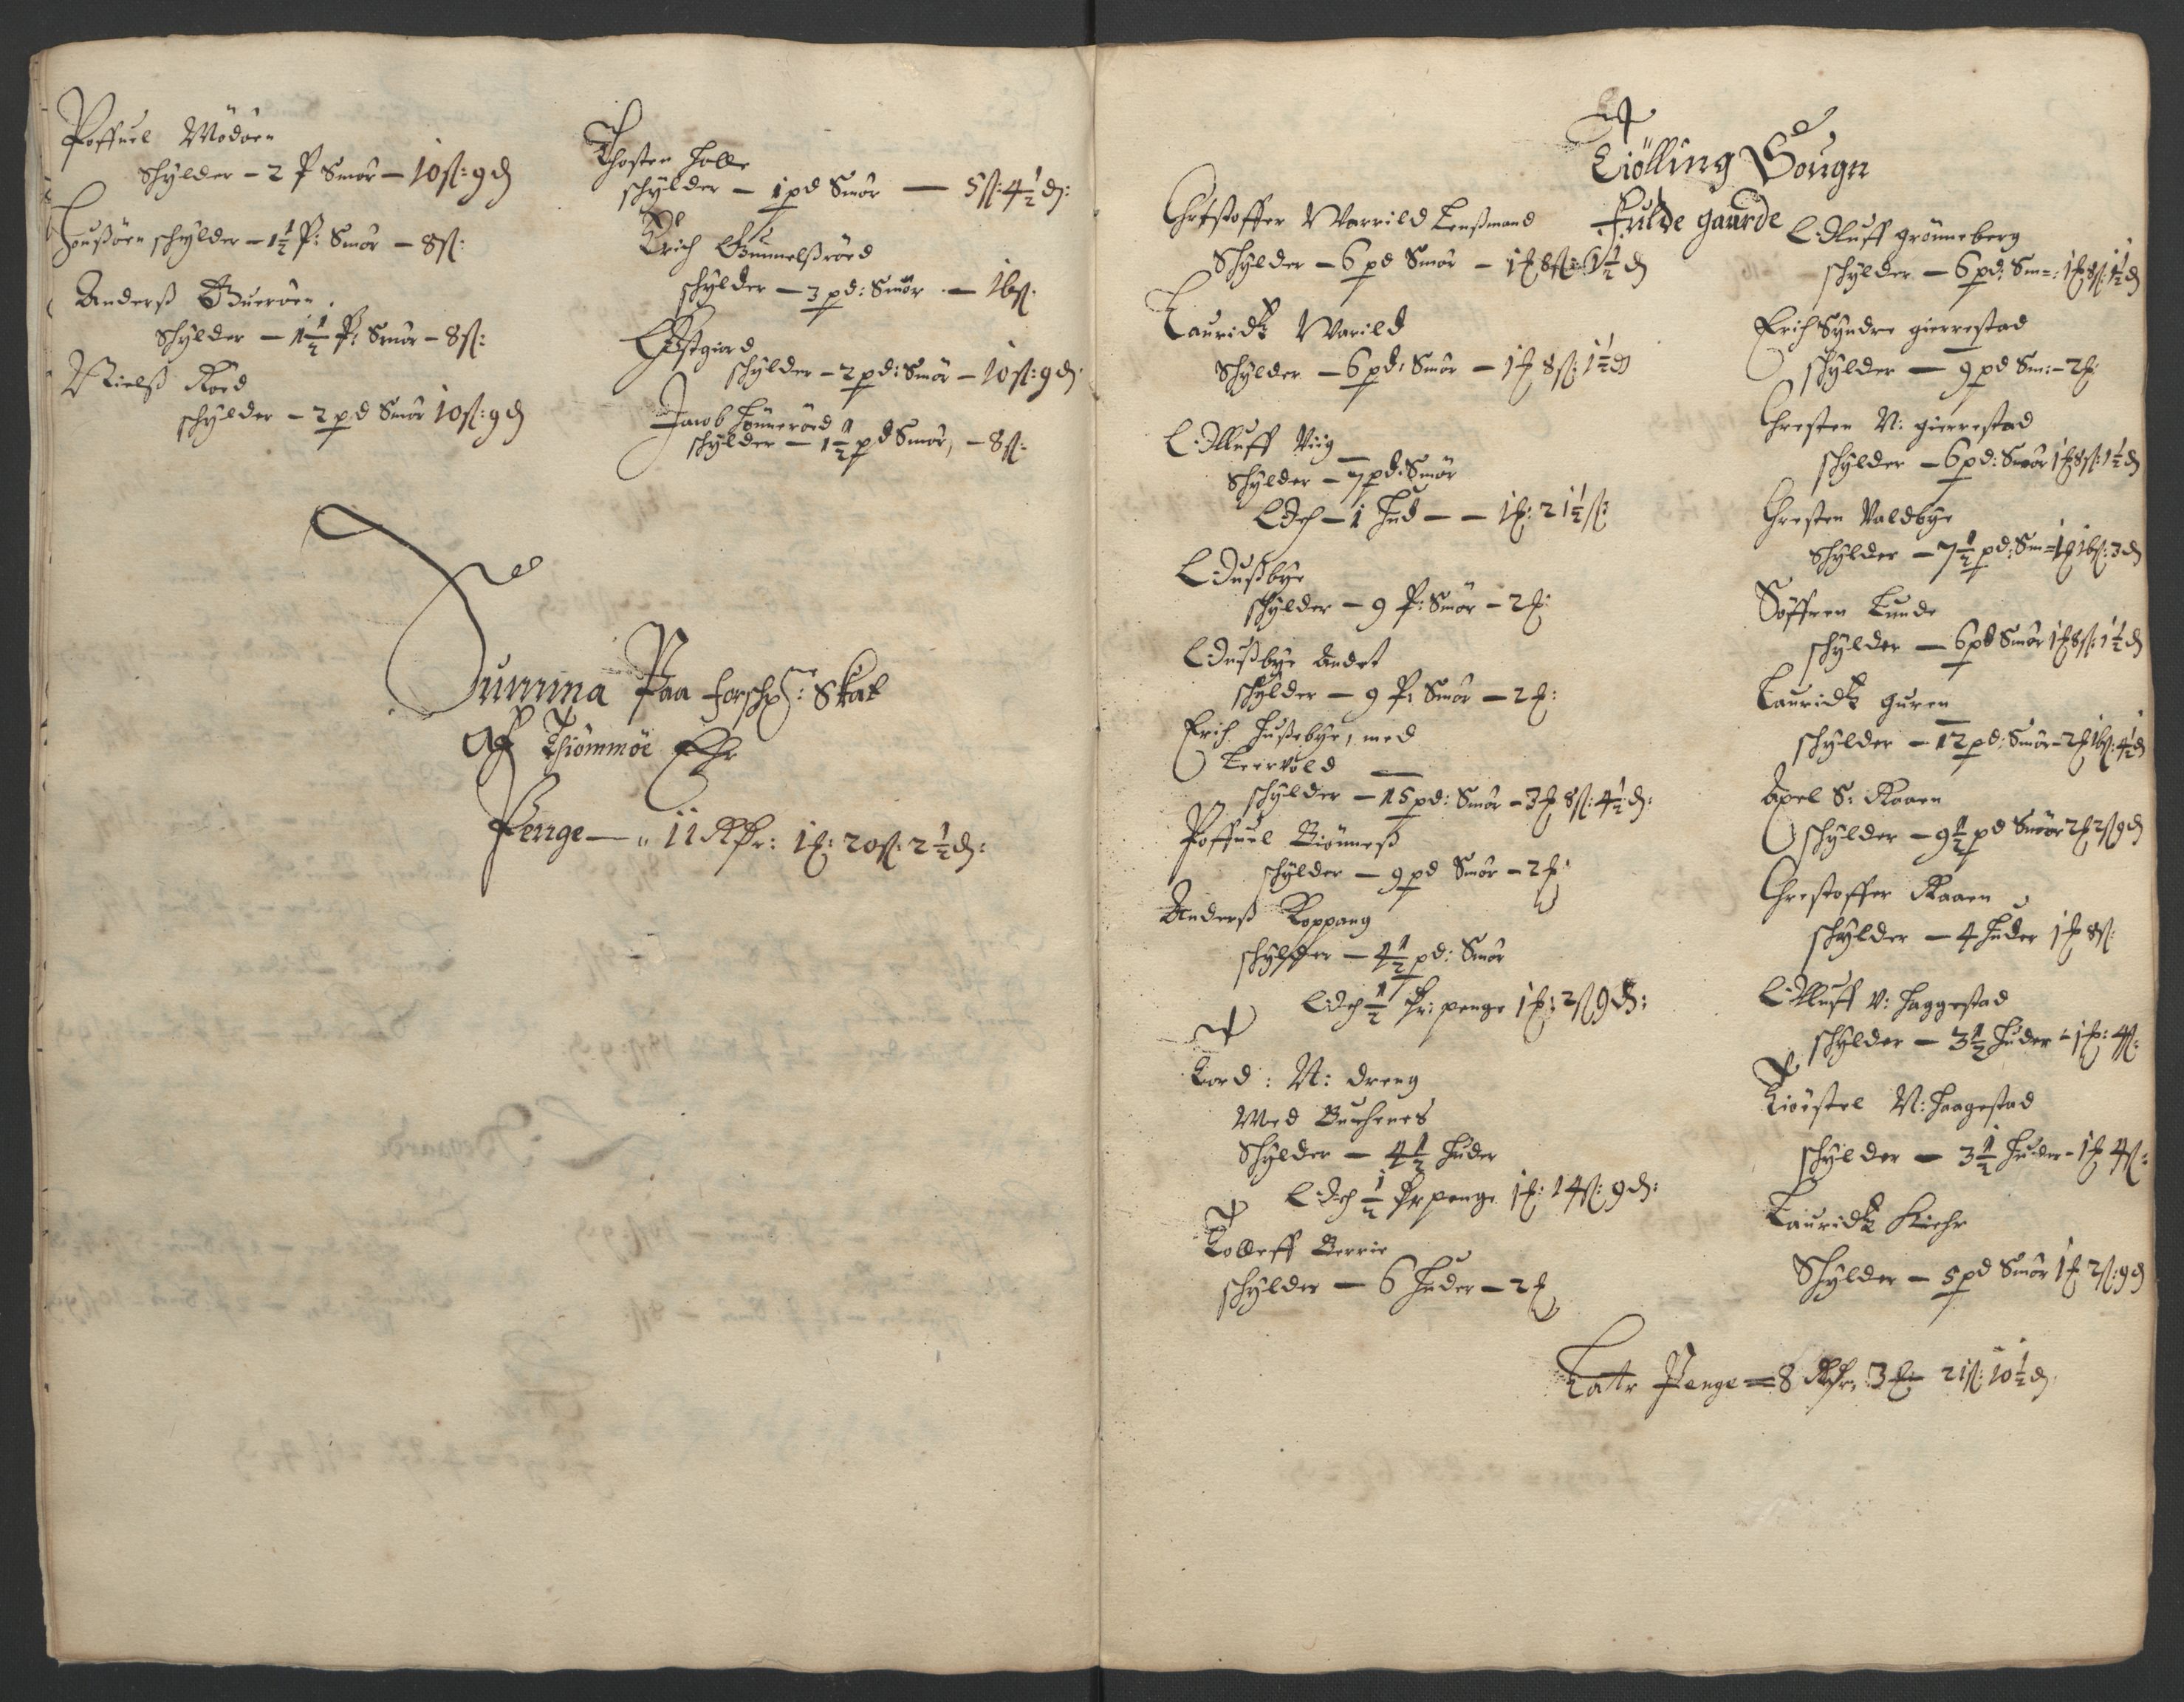 Poffuel Mödöen
schylder – 2 P Smör – 10 ß: 9 d
Houßöen schylder – 1½ P: Smör – 8 ß:
Anderß Bueröen
schylder – 1½ P: Smör – 8 ß:
Nielß Röed
schylder – 2 pd Smör 10 ß: 9 d
Thosten Holle
schylder – 1 pd Smör – 5 ß: 4½ d:
Erich Gunnelßröed
schylder – 3 pd: Smör – 16 ß.
Østgiord
schylder – 2 pd: Smör – 10 ß: 9 d.
Jacob Hönneröed
schylder – 1½ pd Smör, – 8 ß:
Summa Paa forsch: Skat
Af Thiömmöe Ehr
Penge – 11 Rdr: 1 ƒ: 20 ß: 2½ d:
Tiölling Sougn
Fulde gaarde
Christoffer Warrild Lenßmand
Schylder – 6 pd Smör – 1 ƒ 8 ß: 1½ d
Lauridtz Warild
Schylder – 6 pd: Smör – 1 ƒ 8 ß: 1½ d
Olluff Viig
Schylder – 7 pd: Smör
Och – 1 Hud – – 1 ƒ: 21½ ß:
Oußbye
schylder – 9 P: Smör – 2 ƒ:
Oußbye Andet
schylder – 9 P: Smör – 2 ƒ:
Erich Hußebye, med
Leervold
schylder – 15 pd: Smör – 3 ƒ 8 ß: 4½ d:
Poffuel Biönneß
schylder – 9 pd Smör – 2 ƒ:
Anderß Roppang
schylder – 4½ pd: Smör
Och ½ Pr: penge 1 ƒ: 2 ß 9 d:
Tord: N: dreng
Med Buchenes
Schylder – 4½ Huder
Och ½ Pr penge 1 ƒ: 14 ß: 9 d:
Tolleff Berrie
schylder – 6 Huder – 2 ƒ
Olluff Grönneberg
schylder – 6 pd: Sm=: 1 ƒ 8 ß: 1½ d
Erich Syndre gierrestad
schylder – 9 pd Sm: – 2 ƒ:
Chresten N: gierrestad
schylder – 6 pd: Smör 1 ƒ 8 ß: 1½ d
Chresten Valdbye
Schylder – 7½ pd: Sm= 1 ƒ 16 ß: 3 d
Söffren Lunde
schylder – 6 pd Smör 1 ƒ 8 ß: 1½ d
Lauridtz Guren
schylder – 12 pd: Smör – 2 ƒ 16 ß: 4½ d
Axel S: Kaaen
schylder – 9½ pd Smöör 2 ƒ 2 ß 9 d
Chrestoffer Kaaen
schylder – 4 Huder 1 ƒ 8 ß:
Olluff V: Haggestad
schylder – 3½ Huder – 1 ƒ: 4 ß:
Kiöstel N: Haagestad
schylder – 3½ Huder – 1 ƒ 4 ß:
Lauridtz Kiehr
Schylder – 5 pd Smör 1 ƒ 2 ß: 9 d
Latr Penge = 8 Rdr, 3 ƒ 21 ß: 10½ d.